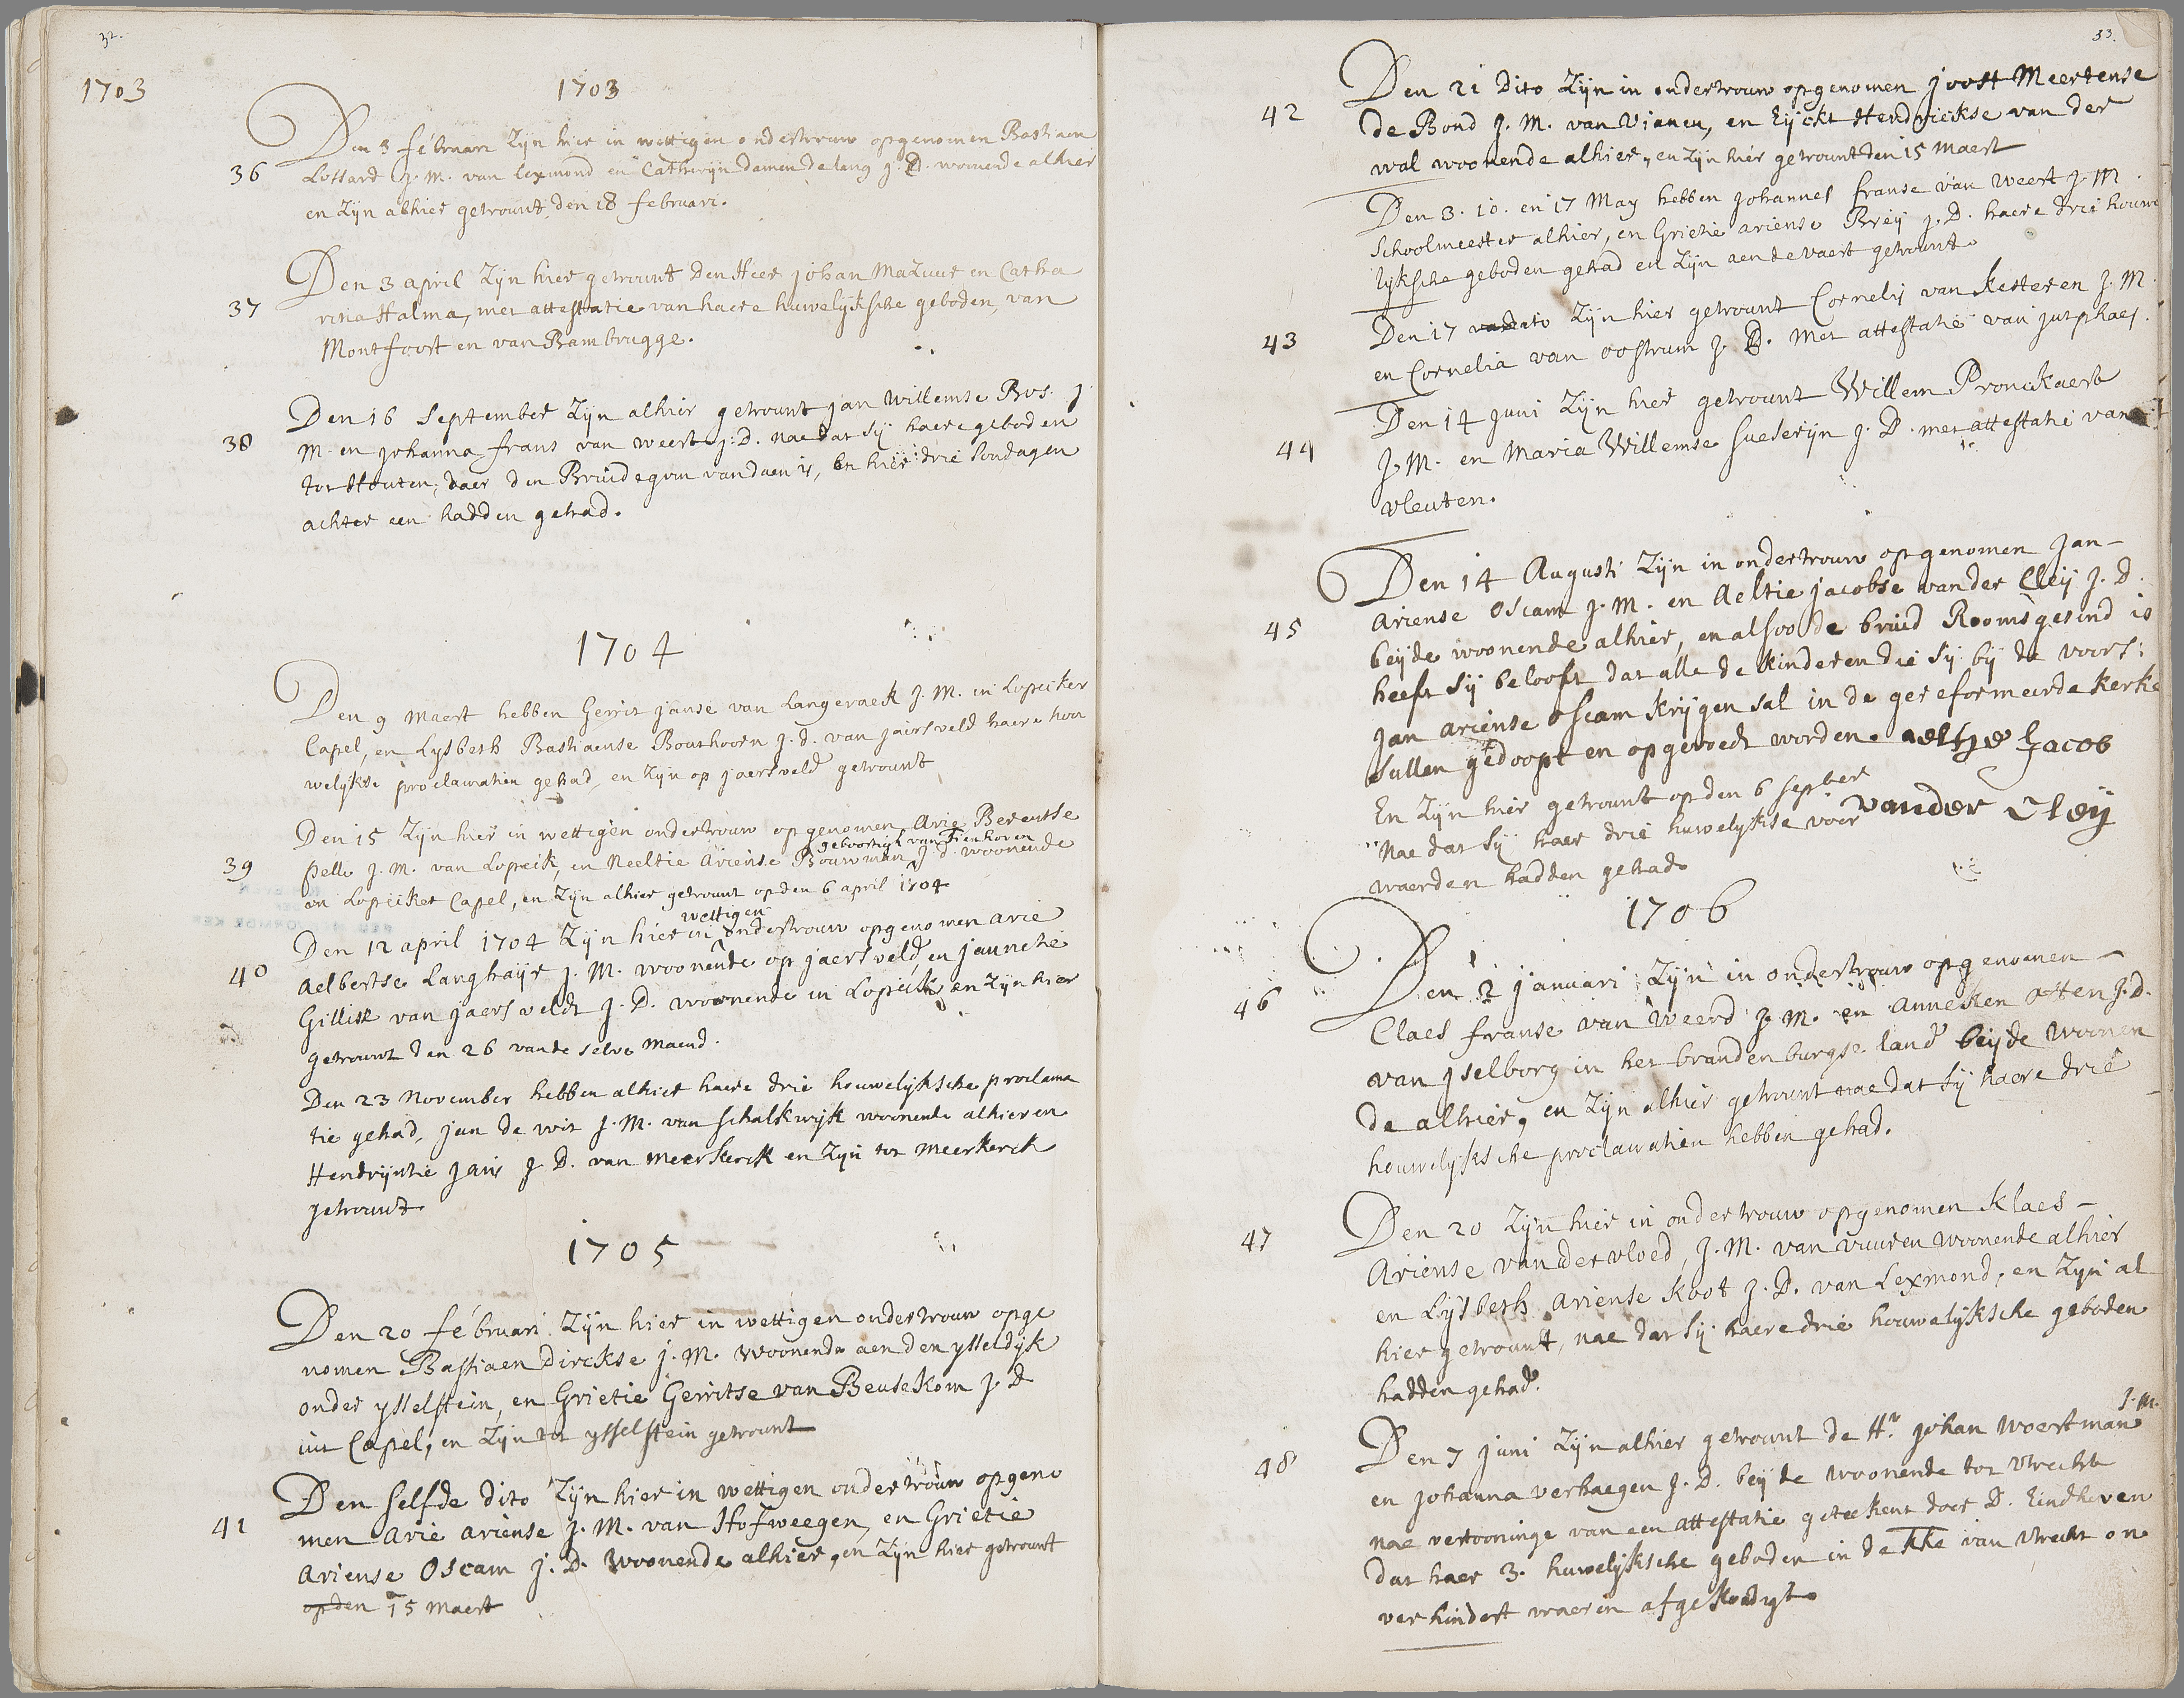 32.
1703
1703
Den 3 februari Zijn hier in wettigen ondertrouw opgenomen Bastiaen
36
Lossard J. M. van Lexmond en Cathrijn Damen de lang J. D. wonende alhier
en zijn alhier getrouwt den 18 februari.
Den 3 april Zijn hier getrouwt Den Heer Johan Mazuur en Catha
37
rina Halma, met attestatie van haere huwelijksche geboden, van
Montfoort en van Bambrugge.
Den 16 September Zijn alhier getrouwt Jan Willemse Bos. J
38
M. en Johanna frans van weert J: D. nae dat sij haere geboden
tot Houten, daer den Bruidegom vandaen is, en hier drie Sondagen
achter een hadden gehad.
1704
Den 9 Maert hebben Gerrit Janse van Langeraek J. M. in Lopicker
Capel, en Lysbeth Bastiaense Bouthoorn J. d. van Jaersveld haere hou
welijkse proclamatien gehad, en zijn op jaersveld getrouwt
Den 15 Zijn hier in wettigen ondertrouw opgenomen Arie Berentse
geboortigh van Tienhoven
39
pelle J. M. van Lopick, en Neeltie Ariense Bouwman J. d. woonende
in Lopicker Capel, en Zijn alhier getrouwt op den 6 april 1704
wettigen
Den 12 april 1704 Zijn hier in ondertrouw opgenomen arie
40
Aelbertse Langhaijr J. M. woonende op jaersveld, en jannetie
Gillisse van jaersveldt J. D. woonende in Lopick en Zijn hier
getrouwt den 26 vande selve Maend.
Den 23 November hebben alhier haere drie houwelijksche proclama
tie gehad, jan de wit J. M. van Schalkwijk woonende alhier en
Hendrijntie Jans J D. van Meerkerck en Zijn tot Meerkerck
getrouwt
1705
Den 20 februari Zijn hier in wettigen ondertrouw opge
nomen Bastiaen Dirckse J. M. Woonende aen den ysseldijk
onder ysselstein, en Grietie Gerritse van Beusekom J. D
uit Capel, en Zijn tot ysselstein getrouwt
Den selfde dito Zijn hier in wettigen ondertrouw opgeno
41
men Arie Ariense J. M. van Hofweegen, en Grietie
Ariense Oscam J. D. Woonende alhier, en Zijn hier getrouwt
op den 15 Maert
33.
Den 21 Dito Zijn in ondertrouw opgenomen Joost Meertense
42
de Bond J. M. van Vianen, en Eijckt Hendrickse van der
wal woonende alhier, en Zijn hier getrouwt den 15 Maert
Den 3. 10. en 17 May hebben Johannes franse van Weert J. M.
Schoolmeester alhier, en Grietie ariense Breij J. D. haere drie houwe
lijksche geboden gehad en Zijn aen de vaert getrouwt.
43
Den 17 dato Zijn hier getrouwt Cornelis van Kesteren J. M.
en Cornelia van Oostrum J. D. Met attestatie van Jutphaes.
Den 14 Juni Zijn hier getrouwt Willem Pronckaert
44
J. M. en Maria Willemse Sueserijn J. D. met attestatie van
vleuten.
Den 14 Augusti Zijn in ondertrouw opgenomen Jan
45
Ariense Oscam J. M. en Aeltie Jacobse van der Cleij J. D.
beijde woonende alhier, en alsoo de bruid Rooms gesind is
heeft sij belooft dat alle de kinderen die sij bij de voors:
Jan Ariense Oscam krijgen sal in de gereformeerde kerke
sullen gedoopt en opgevoedt worden. aeltje Jacob
En Zijn hier getrouwt op den 6 September
van der Cleij
Nae dat sij haer drie huwelijkse voor
waerden hadden gehad.
1706
Den 2 januari Zijn in ondertrouw opgenomen
46
Claes franse van Weerd J. M. en anneken Otten J. D.
van Jselborg in het brandenburgse land beijde woonen
de alhier, en Zijn alhier getrouwt nae dat sij haere drie
houwelijksche proclamatien hebben gehad.
47
Den 20 Zijn hier in ondertrouw opgenomen Klaes
Ariense van der vloed, J. M. van vuuren woonende alhier
en Lijsbeth Ariense Koot J. D. van Lexmond, en Zijn al
hier getrouwt, nae dat sij haere drie houwelijksche geboden
hadden gehad.
J. M.
48
Den 7 juni Zijn alhier getrouwt de Hr. Johan Woertman
en Johanna verhaegen J. D. beijde woonende tot Utrecht
nae vertooninge van een attestatie geteekent door D. Eindhoven
dat haer 3. huwelijksche geboden in de KKe van Utrecht on
verhindert waeren afgekondigt.